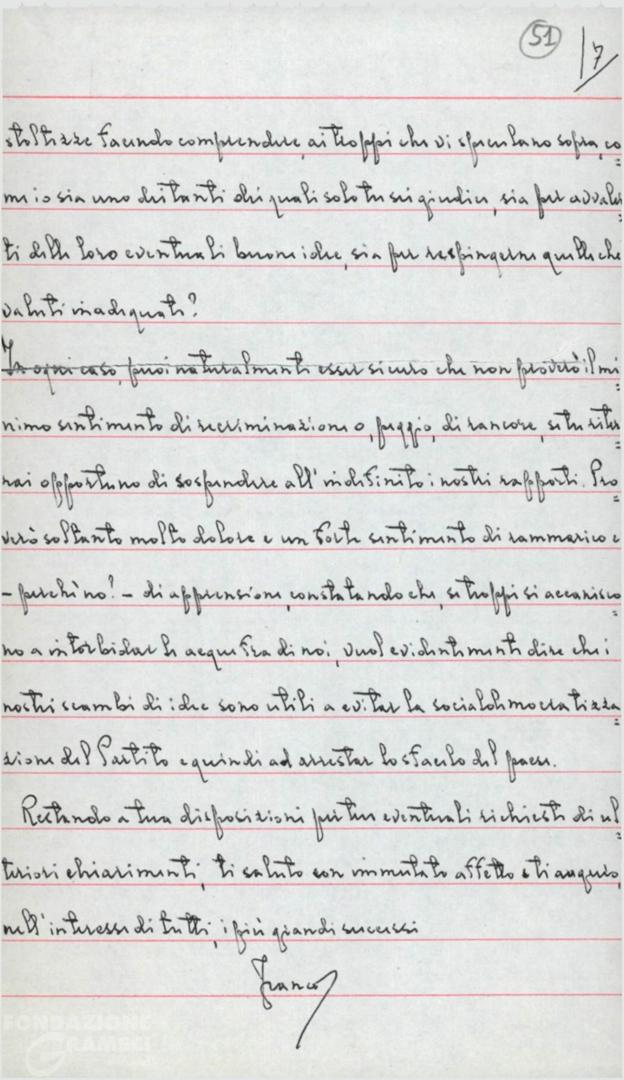 51
/7
stoltizze facendo comprendere, ai troppi che vi speculano sopra, co
me io sia uno dei tanti dei quali solo tu sei giudice, sia per avvaler
ti delle loro eventuali buone idee, sia per respingerne quelle che
valuti inadeguate?
In ogni caso, puoi naturalmente esser sicuro che non proverò il mi
nimo sentimento di recriminazione o, peggio, di rancore, se tu riter
rai opportuno di sospendere all'indefinito i nostri rapporti. Pro
verò soltanto molto dolore e un forte sentimento di rammarico e
- perché no? - di apprensione, constatando che, se troppi si accanisco
no a intorbidar le acque fra di noi, vuol evidentemente dire che i
nostri scambi di idee sono utili a evitar la socialdemocratizza
zione del Partito e quindi ad arrestar lo sfacelo del paese.
Restando a tua disposizione per tue eventuali richieste di ul
teriori chiarimenti, ti saluto con immutato affetto e ti auguro,
nell'interesse di tutti, i più grandi successi
Franco
FONDAZIONE
GRAMSCI